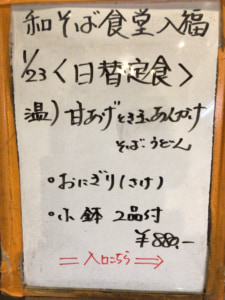 和そば食堂入福
1/23<日替定食>
温)甘あげとき玉あんかけ
そば・うどん
・おにぎり(さけ)
・小鉢 2品付
¥880.-
⇒入口こちら⇒